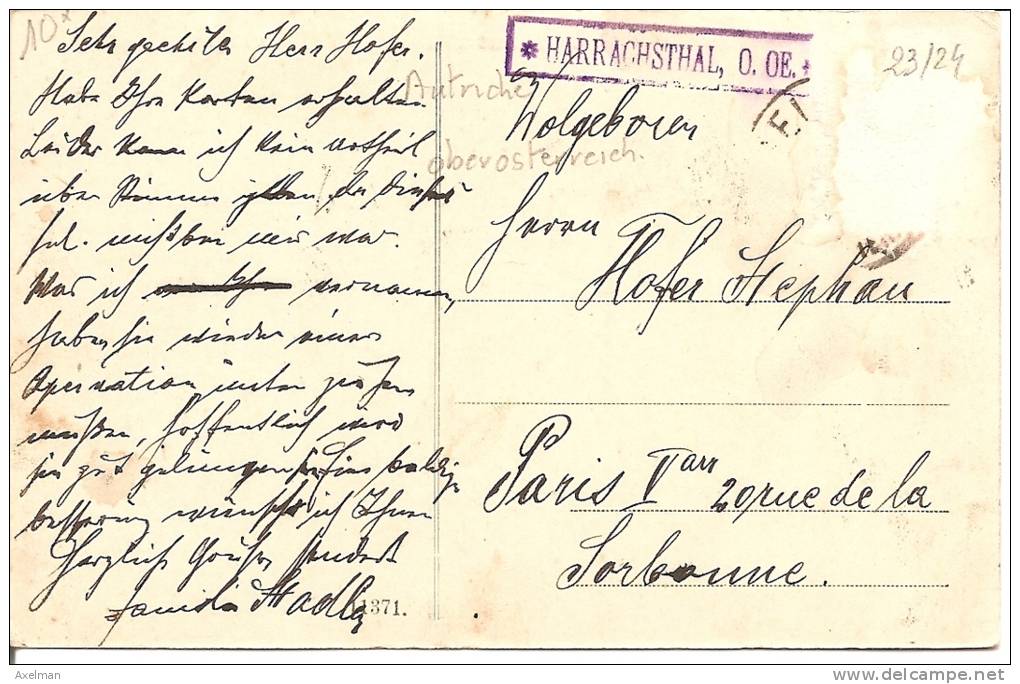 10x
Sehr geehrter Herr Hofer.
Habe Ihre Karten erhalten
Leider kann ich kein
über
nicht bei mir war.
Was ich vernommen,
haben sie wieder einer
Operation unter ziehen
müssen, hoffentlich wird
sie gut gelungen sein baldige
besserung wünscht ich Ihnen
Herzliche Grüße sendet
Familie Stadler
11371.
* HARRACHSTHAL, O. OE. *
Autriche
oberosterreich.
23/24
Wolgeboren
Herrn
Hofer Stephan
Paris V arr 20 rue de la
Sorbonne.
Axelman
www.delcampe.net